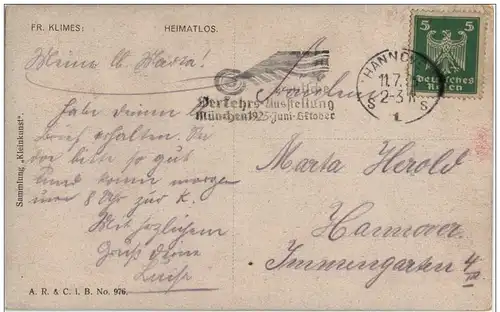 FR. KLIMES: HEIMATLOS.
Meine lb. Marta!
Habe deinen lb.
Brief erhalten. Sei
doch bitte so gut
und komm morgen
um 8 Uhr zur K.
Mit herzlichem
Gruß deine
Luise
Sammlung „Kleinkunst".
A. R. & C. i. B. No. 976.
Verkehrs Ausstellung
München 1925 Juni-Oktober
HANNOVER
11.7.
2-3 N
S S
1
5 5
Deutsches
Reich
Fräulein
Marta Herold
Hannover
Immengarten